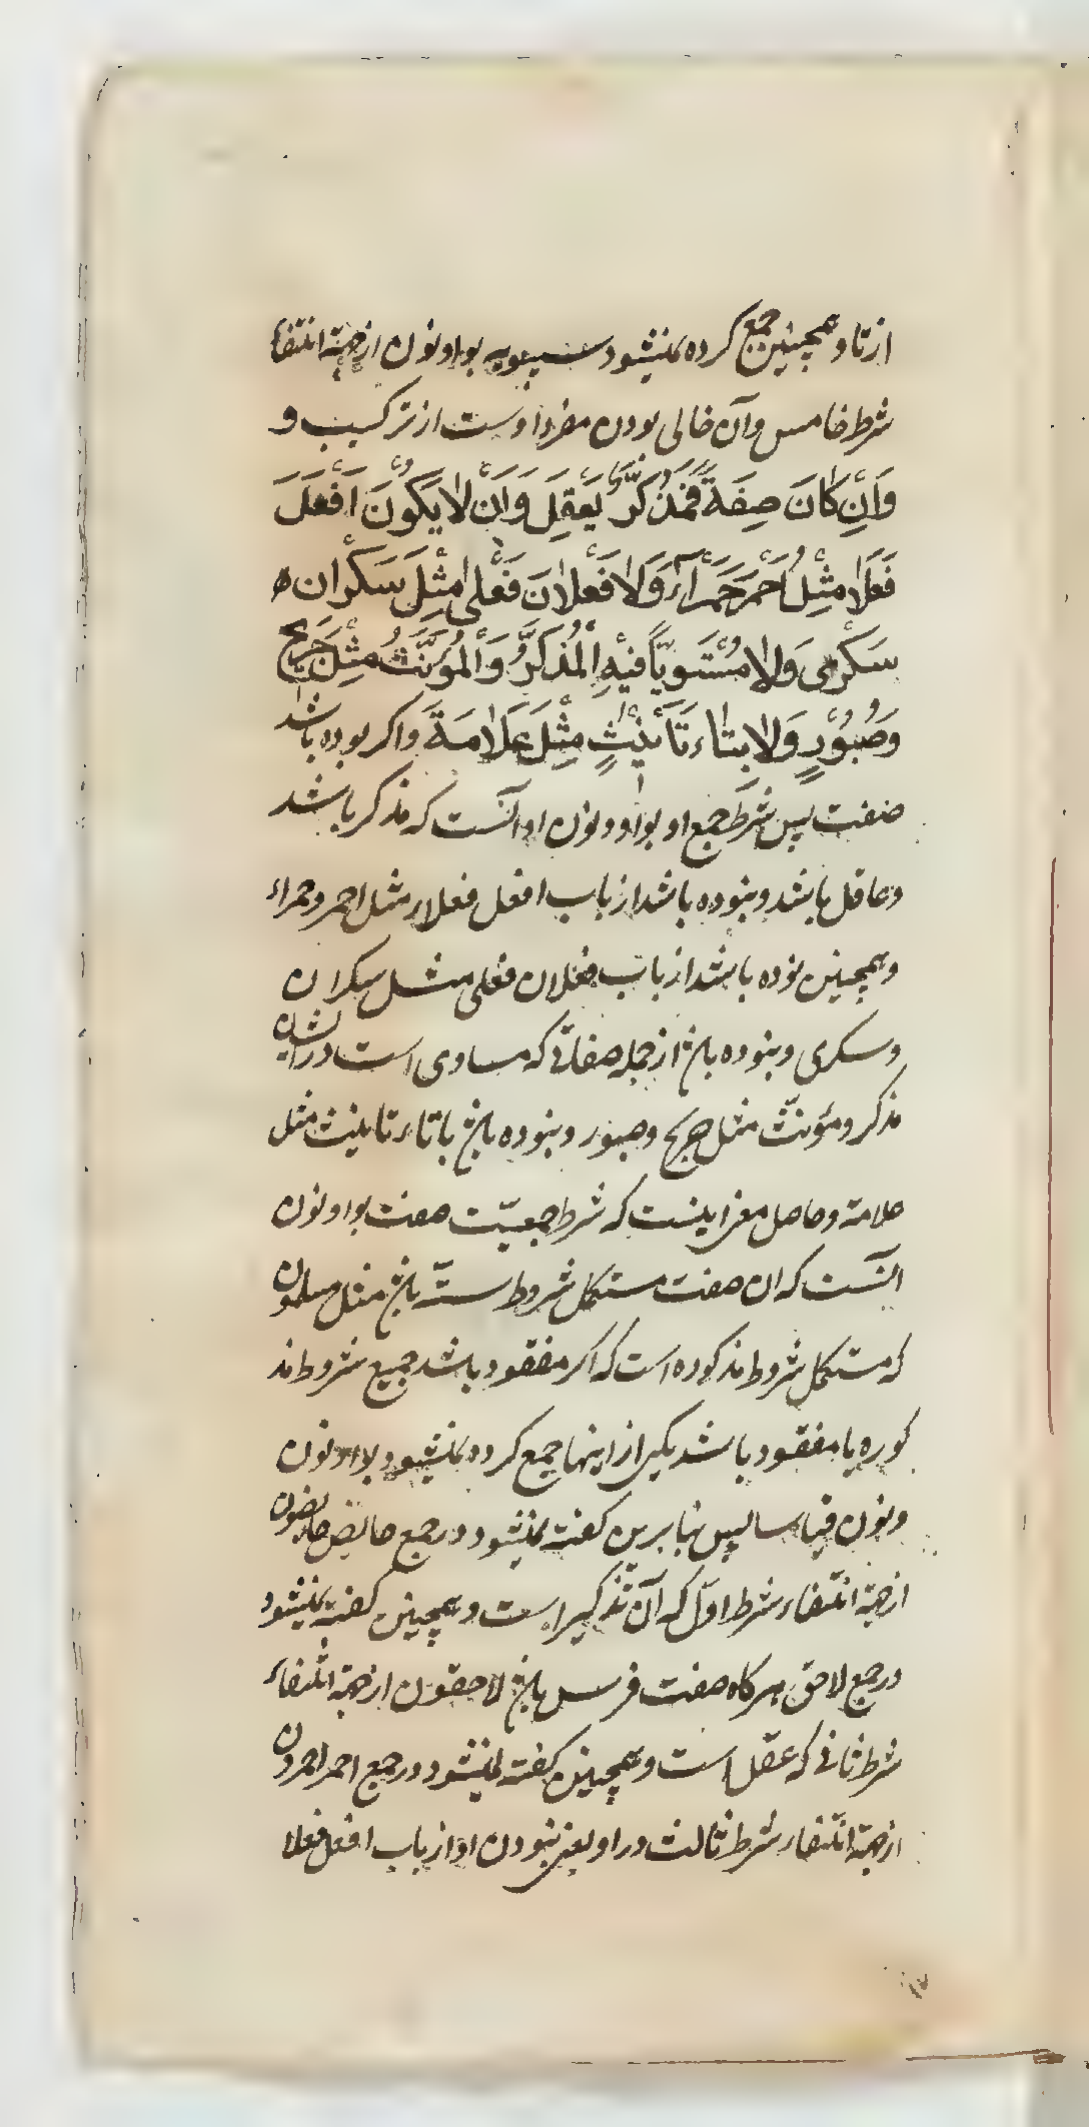 از تا و همچنین جمع کرده نمیشود سیبویه بواو نون از جهة انتفاء
شرط خامس و آن خالی بودن مفرد اوست از ترکیب و
وَاَنْ كانَ صِفَةً فَمُذَكَّرٌ يَعْقِلَ وَاَنْ لا يَكُونَ اَفْعَلَ
فَعَلاءَ مِثْلُ اَحْمَرَ حَمَراءَ وَلا فَعْلانَ فَعْلى مِثْلَ سَكْران
سَكْرى وَلا مُسْتَوِيًا فيْهِ الْمُذَكَّرُ وَالْمُؤَنَّثُ مِثْلَ جَريح
وَصَبُوْرٍ وَلا بِتاءِ تَأنيْثٍ مِثْلَ عَلامَة واکر بوده باشد
صفت پس شرط جمع او بواو ونون او آنست که مذکر باشد
وعاقل باشد ونبوده باشد از باب افعل فعلاء مثل احمر وحمراء
وهمچنین نبوده باشد از باب فعلان فعلی مثل سکران
وسکری ونبوده باشد از جمله صفاتی که مساوی است در ایشان
مذکر ومؤنّث مثل جریح وصبور ونبوده باشد با تاء تانیث مثل
علامة وحاصل معنی اینست که شرط جمعیّت صفت بواو نون
آنست که ان صفت مستکمل شروط ستّه باشد مثل مسلمون
که مستکمل شروط مذکوره است که اکر مفقود باشد جمیع شروط مذ
کوره یا مفقود باشد یکی از اینها جمع کرده نمیشود بواو نون
ونون قیاسا پس بنابرین کفته نمیشود در جمع حایض حایضون
از جهة انتفاء شرط اوّل که آن تذکیر است وهمچنین کفته نمیشود
در جمع لاحق هرکاه صفت فرس باشد لاحقون از جهة انتفاء
شرط ثانی که عقل است وهمچنین کفته نمیشود در جمع احمر احمرون
از جهة انتفاء شرط ثالث در او یعنی نبودن او از باب افعل فعلا